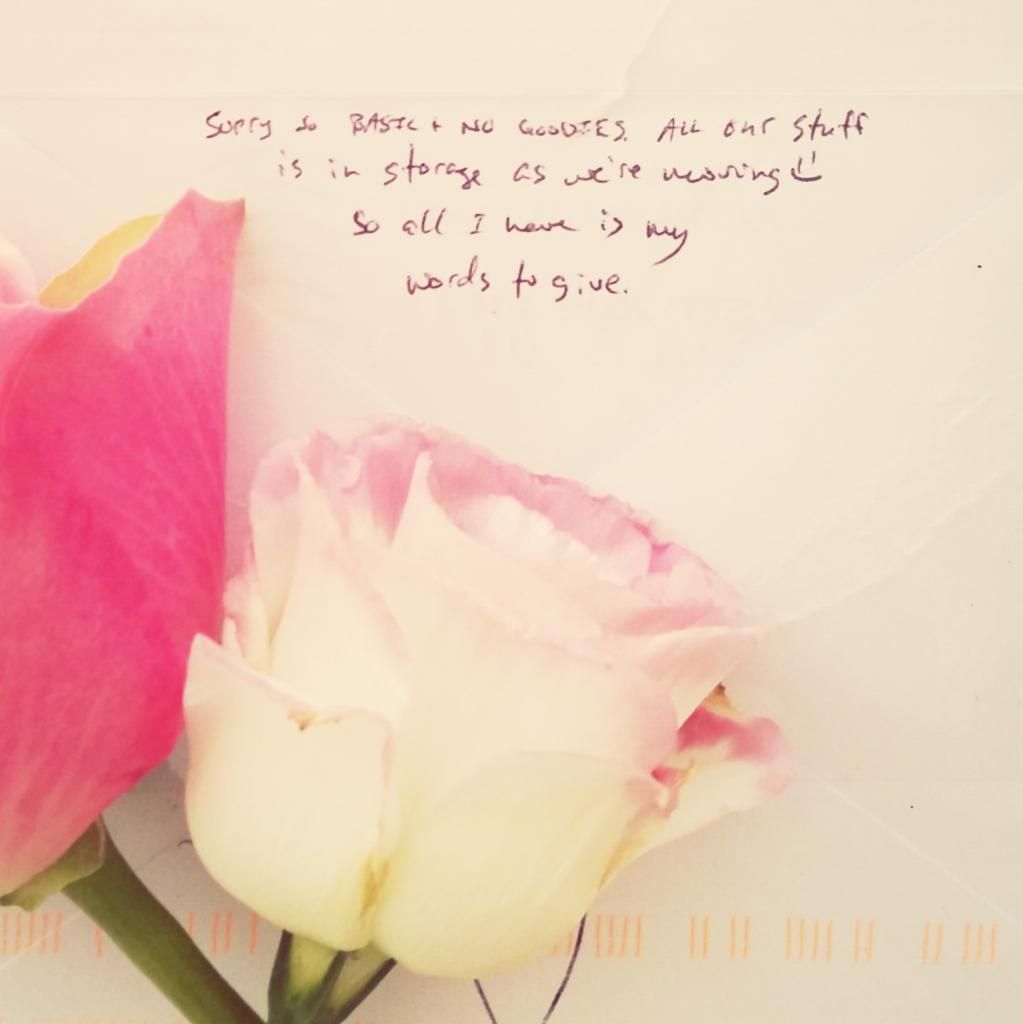 Sorry so BASIC + NO GOODIES. ALL our stuff
is in storage as we're moving
So all I have is my
words to give.